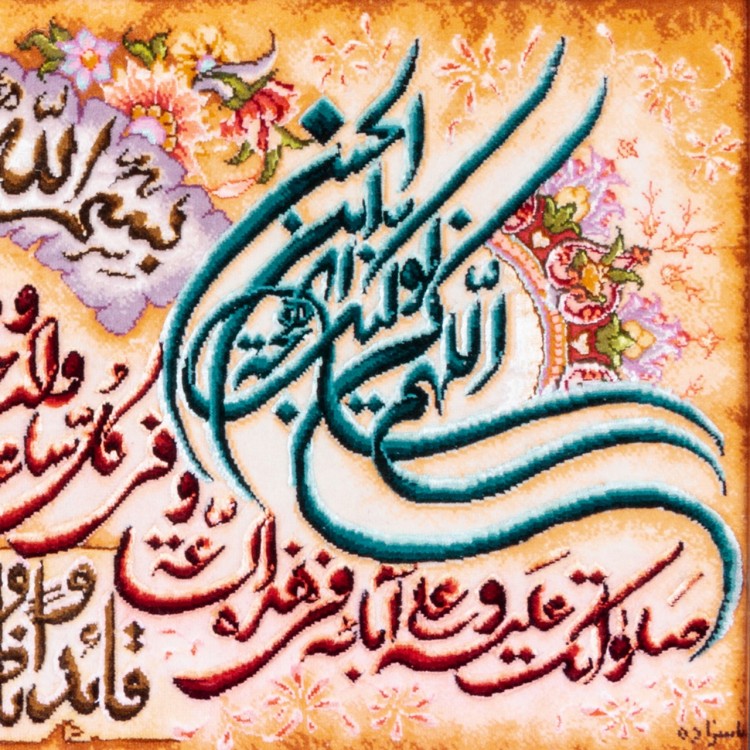 بسم الله
اللهم كن لوليك الحجة ابن الحسن
صلواتك عليه وعلى آبائه في هذه الساعة و
في كل ساعة وليا و
قائدا و